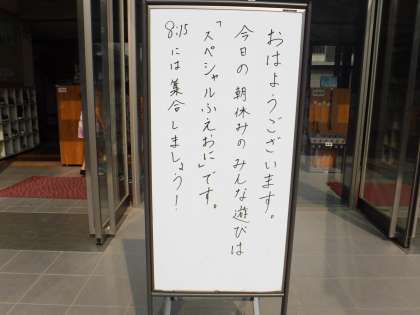 おはようございます。
今日の朝休みのみんな遊びは
「スペシャルふえおに」です。
8:15には集合しましょう!